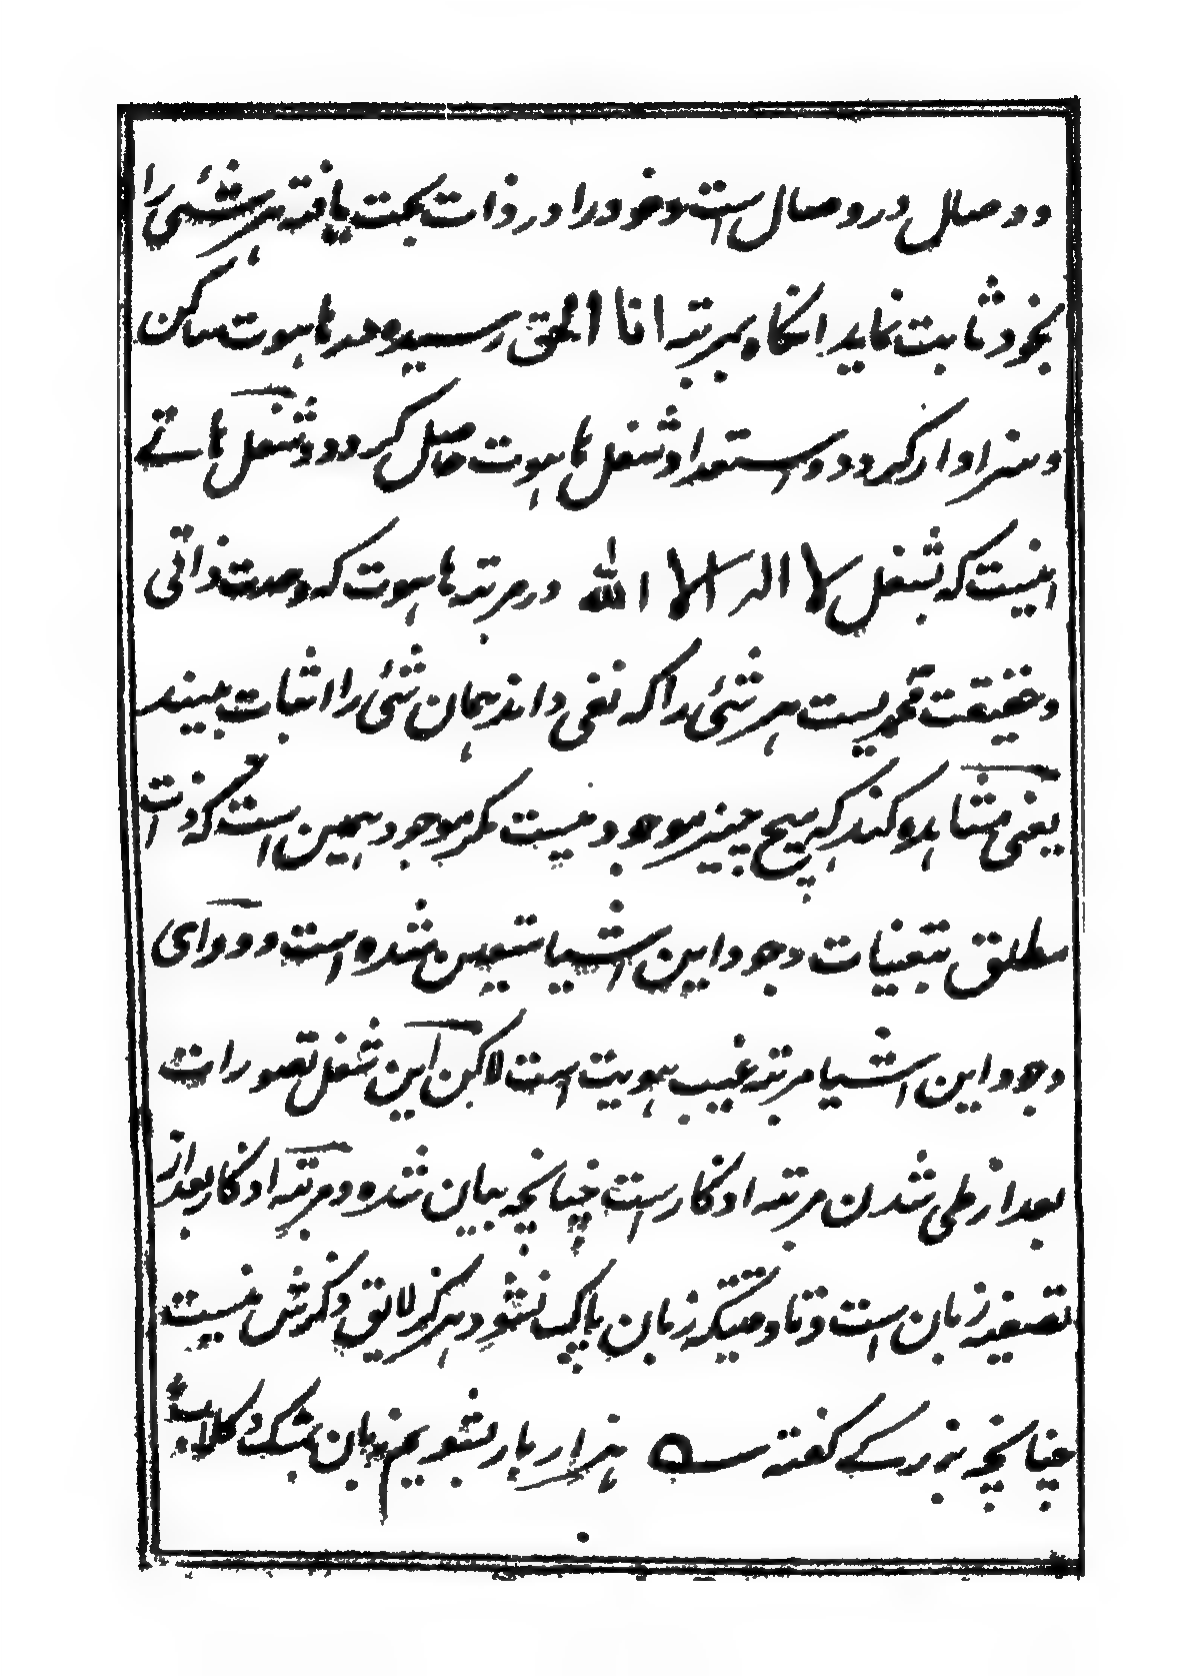 ودصلل در وصال است وخود را در ذات بحت یافته هر شئی را
بخود ثابت نماید انگاه بمرتبه انا الحق رسیده وحد هاهوت ساکن
وسزاوار گردد ومستعداد شغل هاهوت حاصل گردد وشغل هاتے
اینست که بشغل لا اله الا الله در مرتبه هاهوت که وحدت ذاتی
وحقیقت محمدیست هر شئی را که نفی داند همان شئی را اثبات بیند
یعنی مشاهده کند که هیچ چیز موجود نیست مگر موجود همین است که ذات
مطلق بتعینات وجود این اشیا متعین شده است وورای
وجود این اشیا مرتبه غیب هویت است لاکن این شغل تصورات
بعد از طی شدن مرتبه اذکار است چنانچه بیان شده ومرتبه اذکار بعد از
تصفیه زبان است وتا وقتیکه زبان پاک نشود هرگز لایق ذکرش نیست
چنانچه بزرگے گفته هزار بار بشویم زبان بمشک وگلاب